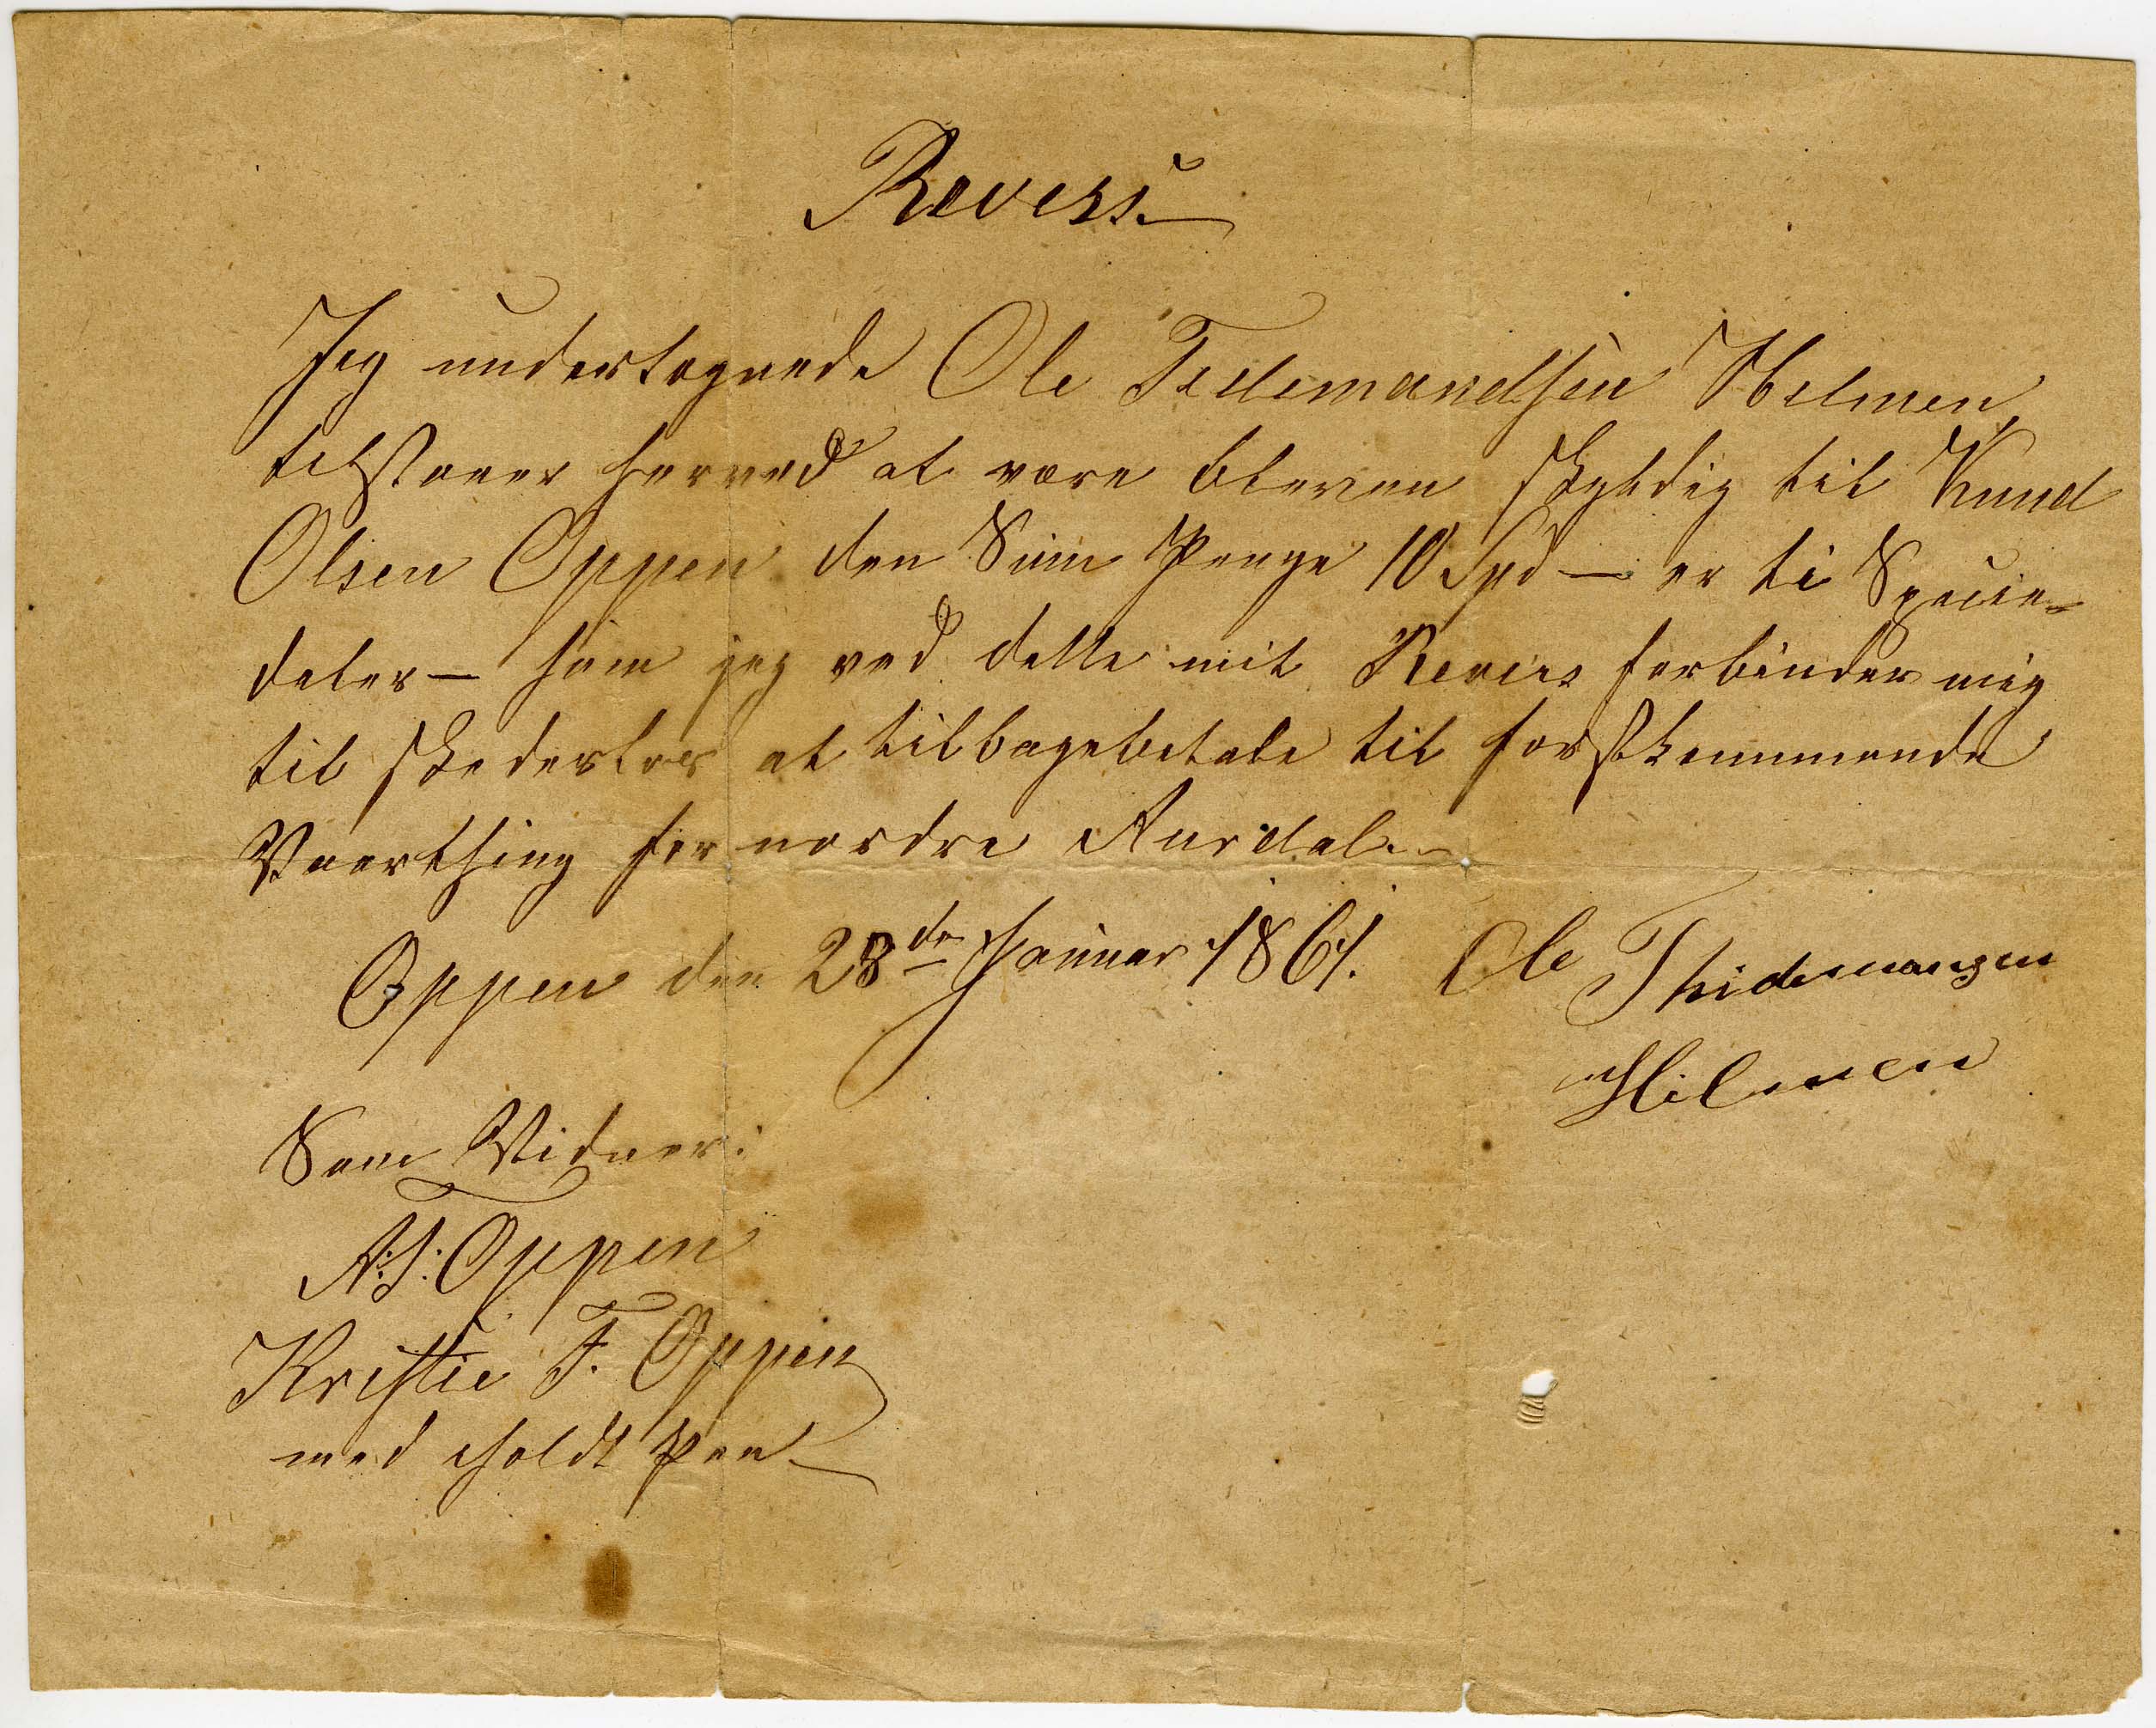 Revers.
Jeg undertegnede Ole Tidemandsen Helmen
tilstaaer herved at være bleven skyldig til Knud
Olsen Oppen den Sum Penge 10 Spd — er ti Specie-
daler — som jeg ved dette mit Revers forbinder mig
til skadesløs at tilbagebetale til førstkommende
Vaarthing for nordre Aurdal.
Oppen den 28de Januar 1861. Ole Thidemansen
Hilmen
Som Vidner:
A: S: Oppen
Kristie T. Oppen
med iholdt Pen